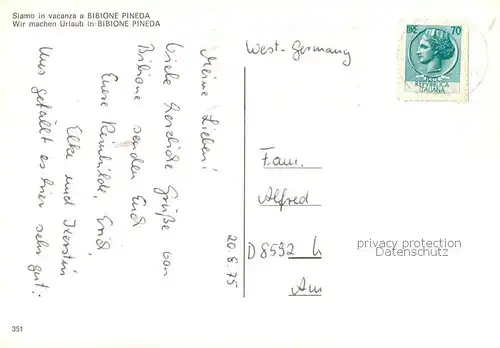 Siamo in vacanza a BIBIONE PINEDA
Wir machen Urlaub in BIBIONE PINEDA
Meine Lieben!
Viele herzliche Grüße von
Bibione senden Euch
Eure Reinhilde, Erich,
Elke und Kerstin
Uns gefällt es hier sehr gut!
20.8.75
West-Germany
LIRE 70
REPVBBLICA
ITALIANA
Fam.
Alfred
D 8592
Am
privacy protection
Datenschutz
351